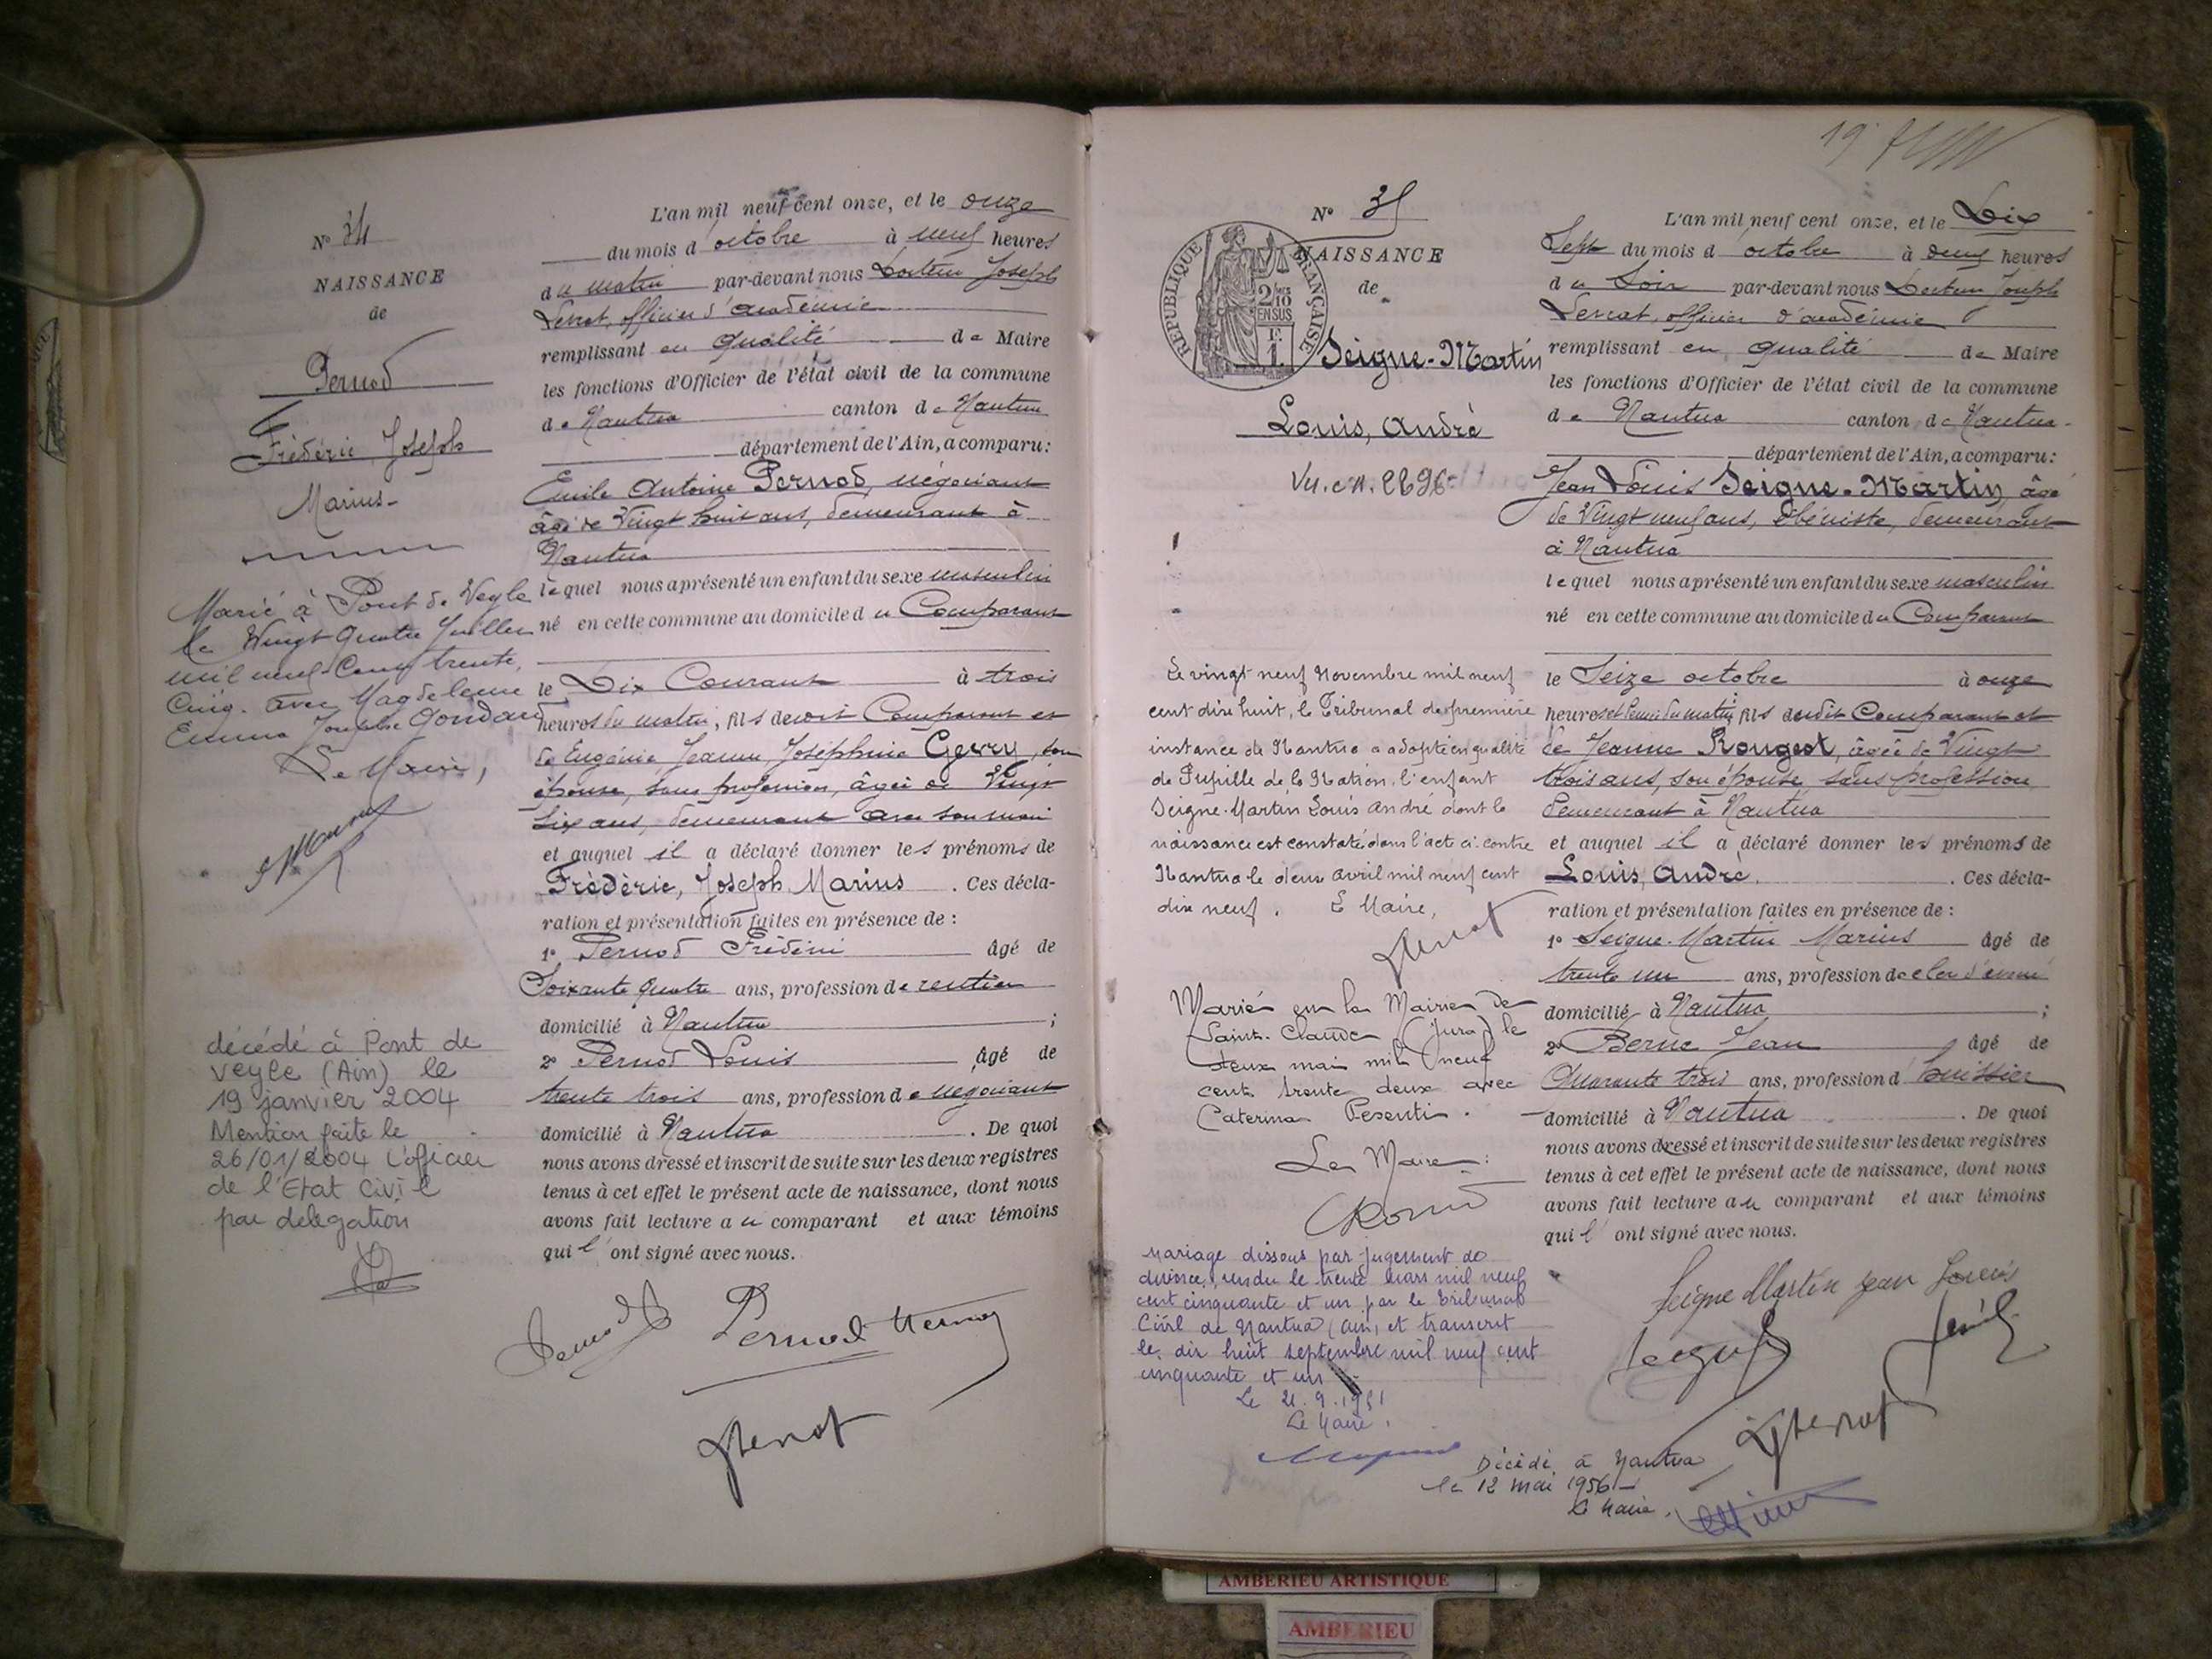 N° 34
NAISSANCE
de
Pernod
Frédéric, Joseph
Marius
Marié à Pont de Veyle
le Vingt Quatre Juillet
mil neuf Cent trente
Cinq. avec Magdeleine
Emma Josephe Gondard
Le Maire,
décédé à Pont de
veyle (Ain) le
19 janvier 2004
Mention faite le
26/01/2004 L'officier
de l'Etat Civil
par délégation
L'an mil neuf cent onze, et le onze
du mois d'octobre à neuf heures
du matin par-devant nous Docteur Joseph
officier d'académie
remplissant en qualité de Maire
les fonctions d'Officier de l'état civil de la commune
de Nantua canton de Nantua
département de l'Ain, a comparu:
Emile Antoine Pernod, négociant
âgé de Vingt huit ans, demeurant à
Nantua
lequel nous a présenté un enfant du sexe masculin
né en cette commune au domicile du Comparant
le Dix Courant à trois
heures du matin, fils dudit Comparant et
de Eugénie Jeanne Joséphine Gerry, son
épouse, sans profession, âgée de Vingt
Six ans, demeurant avec son mari
et auquel il a déclaré donner les prénoms de
Frédéric, Joseph Marius. Ces décla-
ration et présentation faites en présence de :
1° Pernod Frédéric âgé de
Soixante quatre ans, profession de rentier
domicilié à Nantua ;
2° Pernod Louis âgé de
trente trois ans, profession de négociant
domicilié à Nantua. De quoi
nous avons dressé et inscrit de suite sur les deux registres
tenus à cet effet le présent acte de naissance, dont nous
avons fait lecture au comparant et aux témoins
qui l'ont signé avec nous.
Pernod
N° 35
NAISSANCE
de
RÉPUBLIQUE FRANÇAISE
2/10
EN SUS
1F
Seigne-Martin
Louis, André
Le vingt neuf Novembre mil neuf
cent dix huit, le Tribunal de première
instance de Nantua a adopté en qualité
de Pupille de la Nation, l'enfant
Seigne-Martin Louis André dont la
naissance est constatée dans l'acte ci-contre
Nantua le deux avril mil neuf cent
dix neuf. Le Maire,
Marié en la Mairie de
Saint-Claude (Jura) le
deux mai mil neuf
cent trente deux avec
Caterina Pesenti.
Le Maire:
Mariage dissous par jugement de
divorce, rendu le trente mars mil neuf
cent cinquante et un par le tribunal
Civil de Nantua (Ain) et transcrit
le dix huit septembre mil neuf cent
cinquante et un
Le 21.9.1951
Le Maire.
L'an mil neuf cent onze, et le Dix
Sept du mois d'octobre à deux heures
du Soir par-devant nous Docteur Joseph
officier d'académie
remplissant en qualité de Maire
les fonctions d'Officier de l'état civil de la commune
de Nantua canton de Nantua
département de l'Ain, a comparu:
Jean Louis Seigne-Martin, âgé
de Vingt neuf ans, ébéniste, demeurant
à Nantua
lequel nous a présenté un enfant du sexe masculin
né en cette commune au domicile du Comparant
le Seize octobre à onze
heures et demie du matin, fils dudit Comparant et
de Jeanne Rougeot, âgée de Vingt
trois ans, son épouse, sans profession
demeurant à Nantua
et auquel il a déclaré donner les prénoms de
Louis, André. Ces décla-
ration et présentation faites en présence de :
1° Seigne-Martin Marius âgé de
trente un ans, profession de
domicilié à Nantua ;
2° Berne Jean âgé de
Quarante trois ans, profession d'huissier
domicilié à Nantua. De quoi
nous avons dressé et inscrit de suite sur les deux registres
tenus à cet effet le présent acte de naissance, dont nous
avons fait lecture au comparant et aux témoins
qui l'ont signé avec nous.
Seigne Martin Jean Louis
Décédé à Nantua
le 12 mai 1956
Le Maire.
AMBERIEU ARTISTIQUE
AMBERIEU